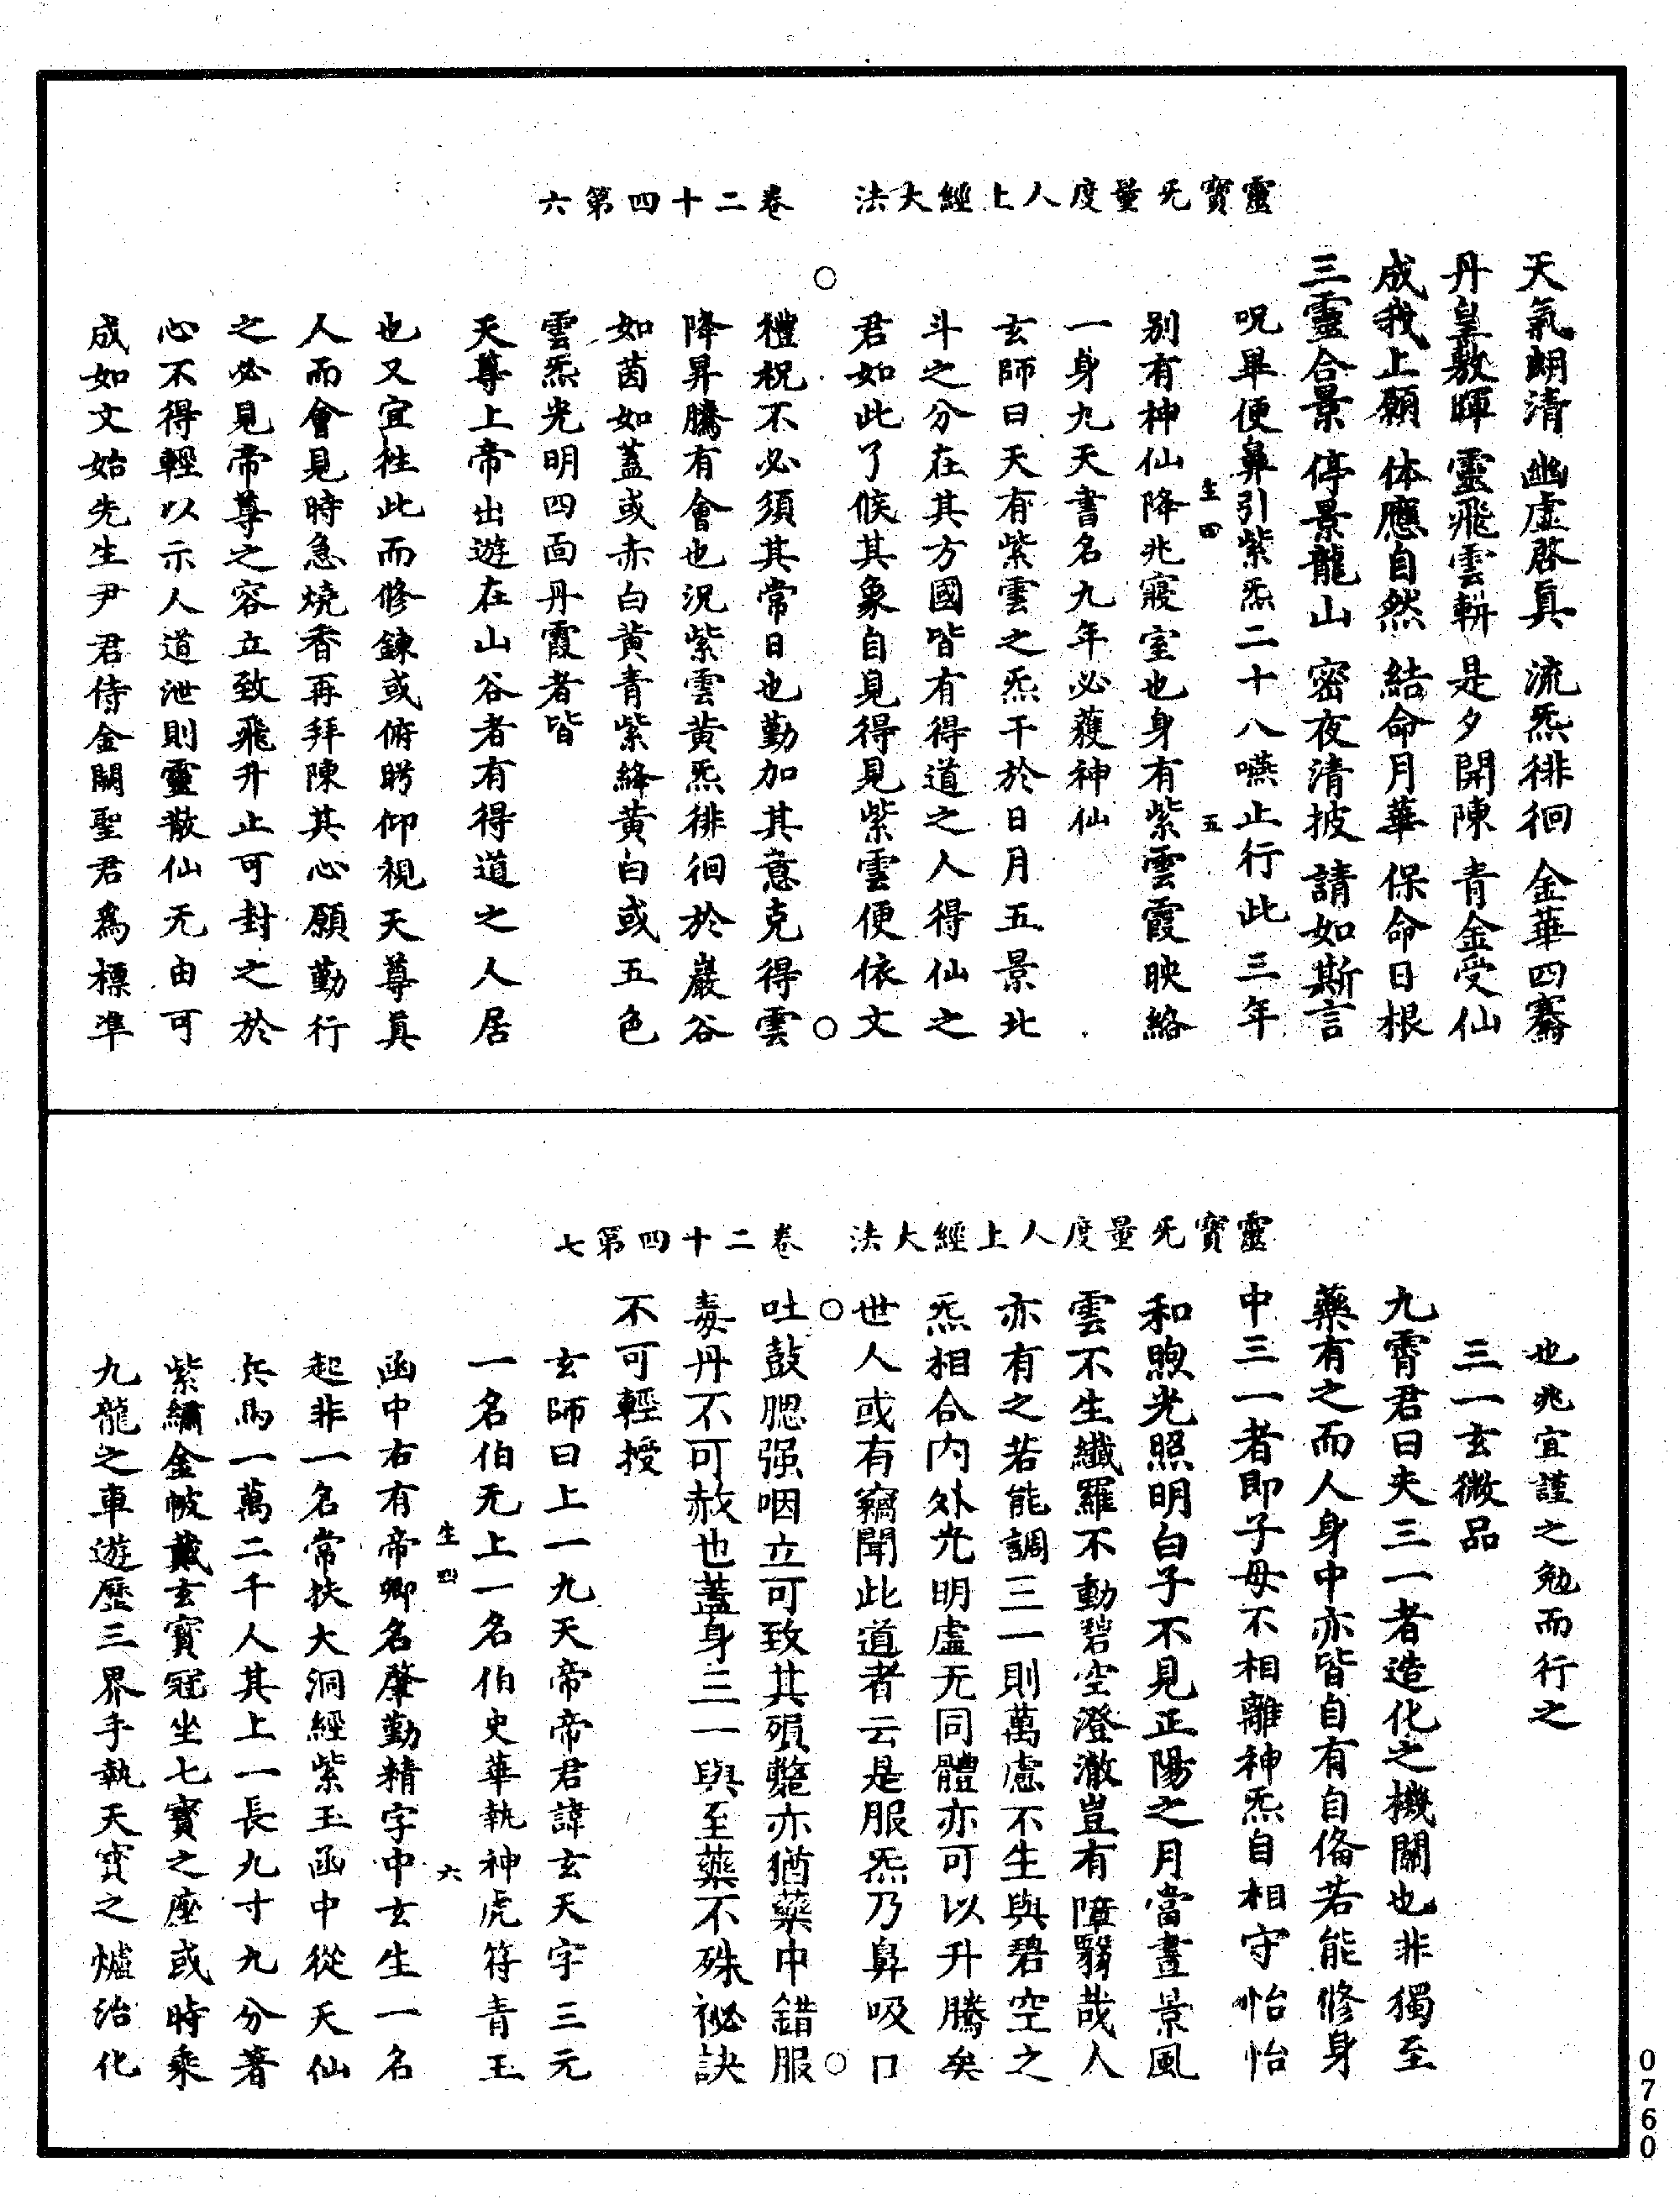 靈寶旡量度人上經大法　卷二十四第六
天氣朗清　幽虛啓真　流炁徘徊　金華四騫
丹皇敷暉　靈飛雲軿　是夕開陳　青金受仙
成我上願　体應自然　結命月華　保命日根
三靈合景　停景龍山　密夜清披　請如斯言
呪畢便鼻引紫炁二十八嚥止行此三年
生四　五
别有神仙降兆寢室也身有紫雲霞映絡
一身九天書名九年必䕶神仙
玄師曰天有紫雲之炁干於日月五景北
斗之分在其方國皆有得道之人得仙之
君如此了候其象自見得見紫雲便依文
禮祝不必須其常日也勤加其意克得雲
降昇騰有會也況紫雲黄炁徘徊於巖谷
如茵如蓋或赤白黄青紫絳黄白或五色
雲炁光明四面丹霞者皆
天尊上帝出遊在山谷者有得道之人居
也又宜往此而修鍊或俯眄仰視天尊真
人而會見時急燒香再拜陳其心願勤行
之必見帝尊之容立致飛升止可封之於
心不得輕以示人道泄則靈散仙无由可
成如文始先生尹君侍金闕聖君爲標準
靈寶旡量度人上經大法　卷二十四第七
也兆宜謹之勉而行之
三一玄微品
九霄君曰夫三一者造化之機關也非獨至
藥有之而人身中亦皆自有自俻若能修身
中三一者即子母不相離神炁自相守怡怡
和煦光照明白子不見正陽之月當晝景風
雲不生纎羅不動碧空澄澈豈有障翳哉人
亦有之若能調三一則萬慮不生與碧空之
炁相合内外光明虛无同體亦可以升騰矣
世人或有竊聞此道者云是服炁乃鼻吸口
吐鼓腮强咽立可致其殞斃亦猶藥中錯服
毒丹不可赦也蓋身三一與至藥不殊祕訣
不可輕授
玄師曰上一九天帝帝君諱玄天字三元
一名伯无上一名伯史華執神虎符青玉
生四　六
函中右有帝卿名肇勤精字中玄生一名
起非一名常扶大洞經紫玉函中從天仙
兵馬一萬二千人其上一長九寸九分著
紫繡金帔戴玄寶冠坐七寶之座或時乘
九龍之車遊歷三界手執天寶之爐治化
0760